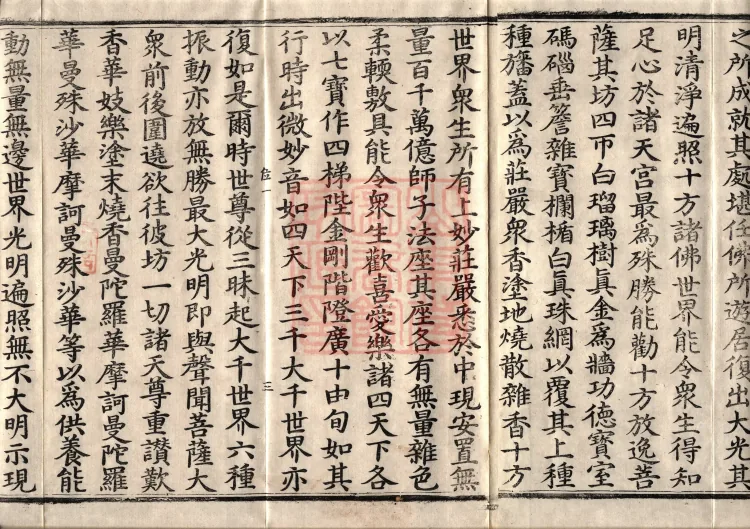 之所成就其處堪任佛所遊居復出大光其
明清淨遍照十方諸佛世界能令衆生得知
足心於諸天宮最爲殊勝能勸十方放逸菩
薩其坊四帀白瑠璃樹眞金爲牆功德寶室
碼碯垂簷雜寶欄楯白眞珠網以覆其上種
種旛蓋以爲莊嚴衆香塗地燒散雜香十方
世界衆生所有上妙莊嚴悉於中現安置無
量百千萬億師子法座其座各有無量雜色
柔輭敷具能令衆生歡喜愛樂諸四天下各
以七寶作四梯陛金剛階隥廣十由旬如其
行時出微妙音如四天下三千大千世界亦
位一
三
復如是爾時世尊從三昧起大千世界六種
振動亦放無勝最大光明即與聲聞菩薩大
衆前後圍遶欲往彼坊一切諸天尊重讃歎
香華妓樂塗末燒香曼陀羅華摩訶曼陀羅
華曼殊沙華摩訶曼殊沙華等以爲供養能
動無量無邊世界光明遍照無不大明示現